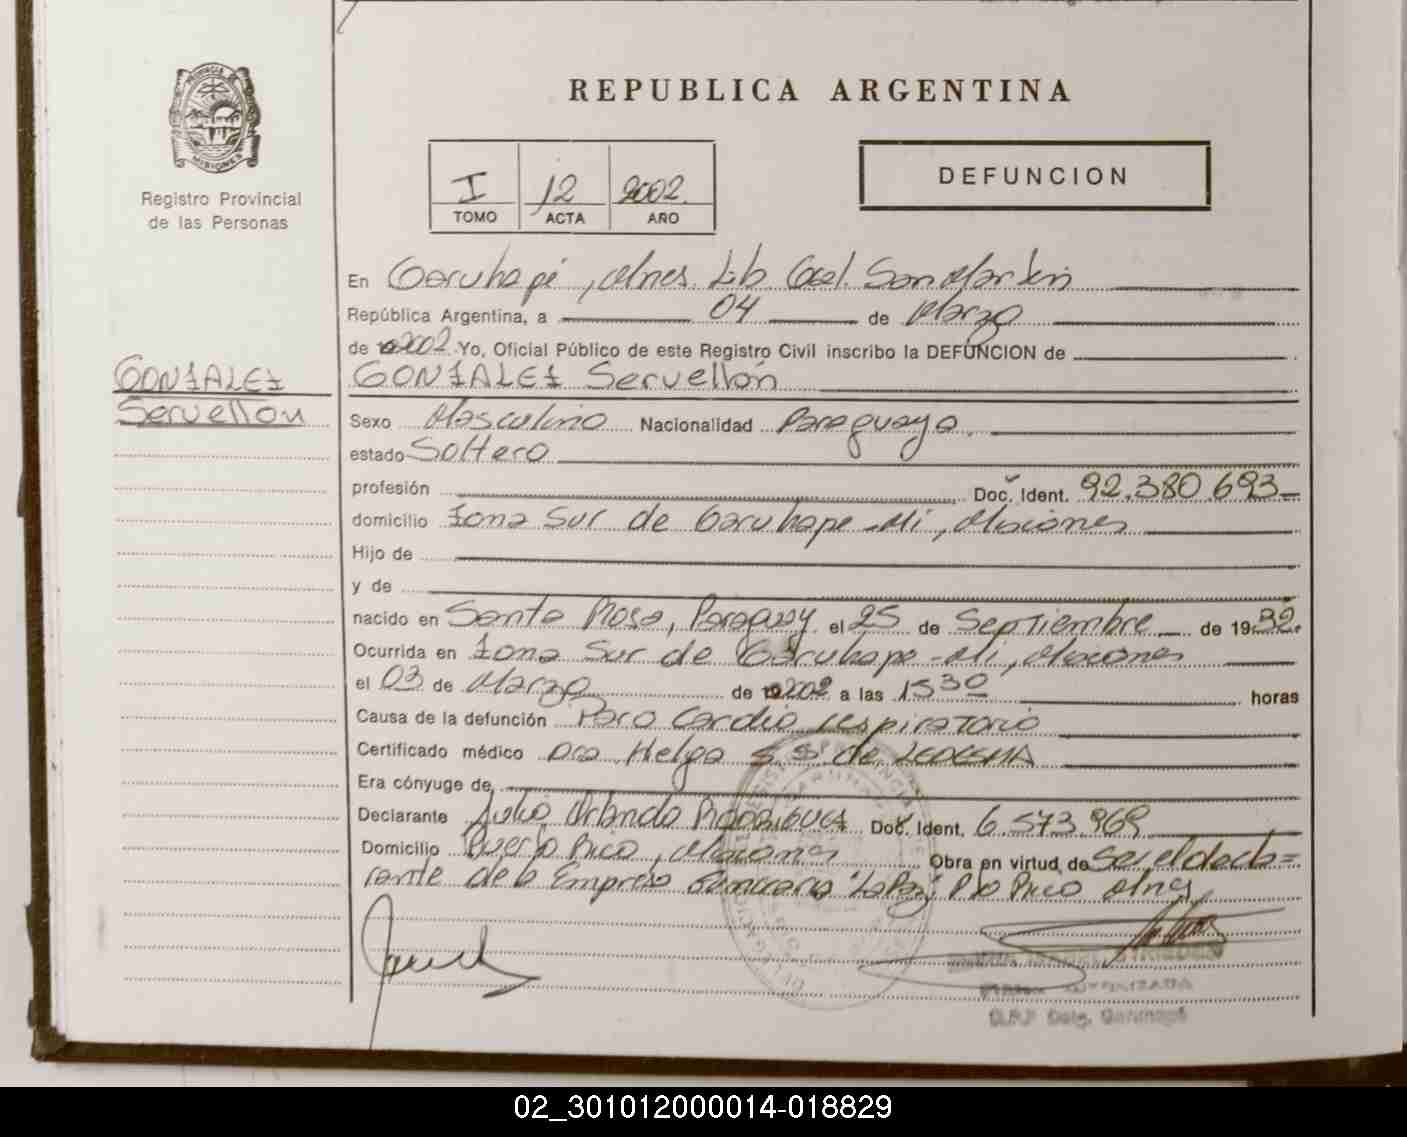 REPUBLICA ARGENTINA
PROVINCIA DE
MISIONES
Registro Provincial
de las Personas
I 12 2002
TOMO ACTA AÑO
DEFUNCION
En Garuhapé, Mnes. Lib. Gral. San Martin
República Argentina, a 04 de Marzo
de 2002 Yo, Oficial Público de este Registro Civil inscribo la DEFUNCION de
GONZALEZ Servellón
GONZALEZ
Servellon
Sexo Masculino Nacionalidad Paraguaya.
estado Soltero
profesión Doc. Ident. 92.380.693
domicilio Zona Sur de Garuhape-Mi, Misiones
Hijo de
y de
nacido en Santa Rosa, Paraguay el 25 de Septiembre de 1932.
Ocurrida en Zona Sur de Garuhape-Mi, Misiones
el 03 de Marzo de 2002 a las 15 30 horas
Causa de la defunción Paro Cardio respiratorio
Certificado médico Dra. Helga S. S. de LEDESMA
Era cónyuge de
Declarante Julio Orlando RODRIGUEZ Doc. Ident. 6.573.969
Domicilio Puerto Rico, Misiones Obra en virtud de Ser el decla=
rante de la Empresa Funeraria "La Paz", Pto Rico Mnes
02_301012000014-018829